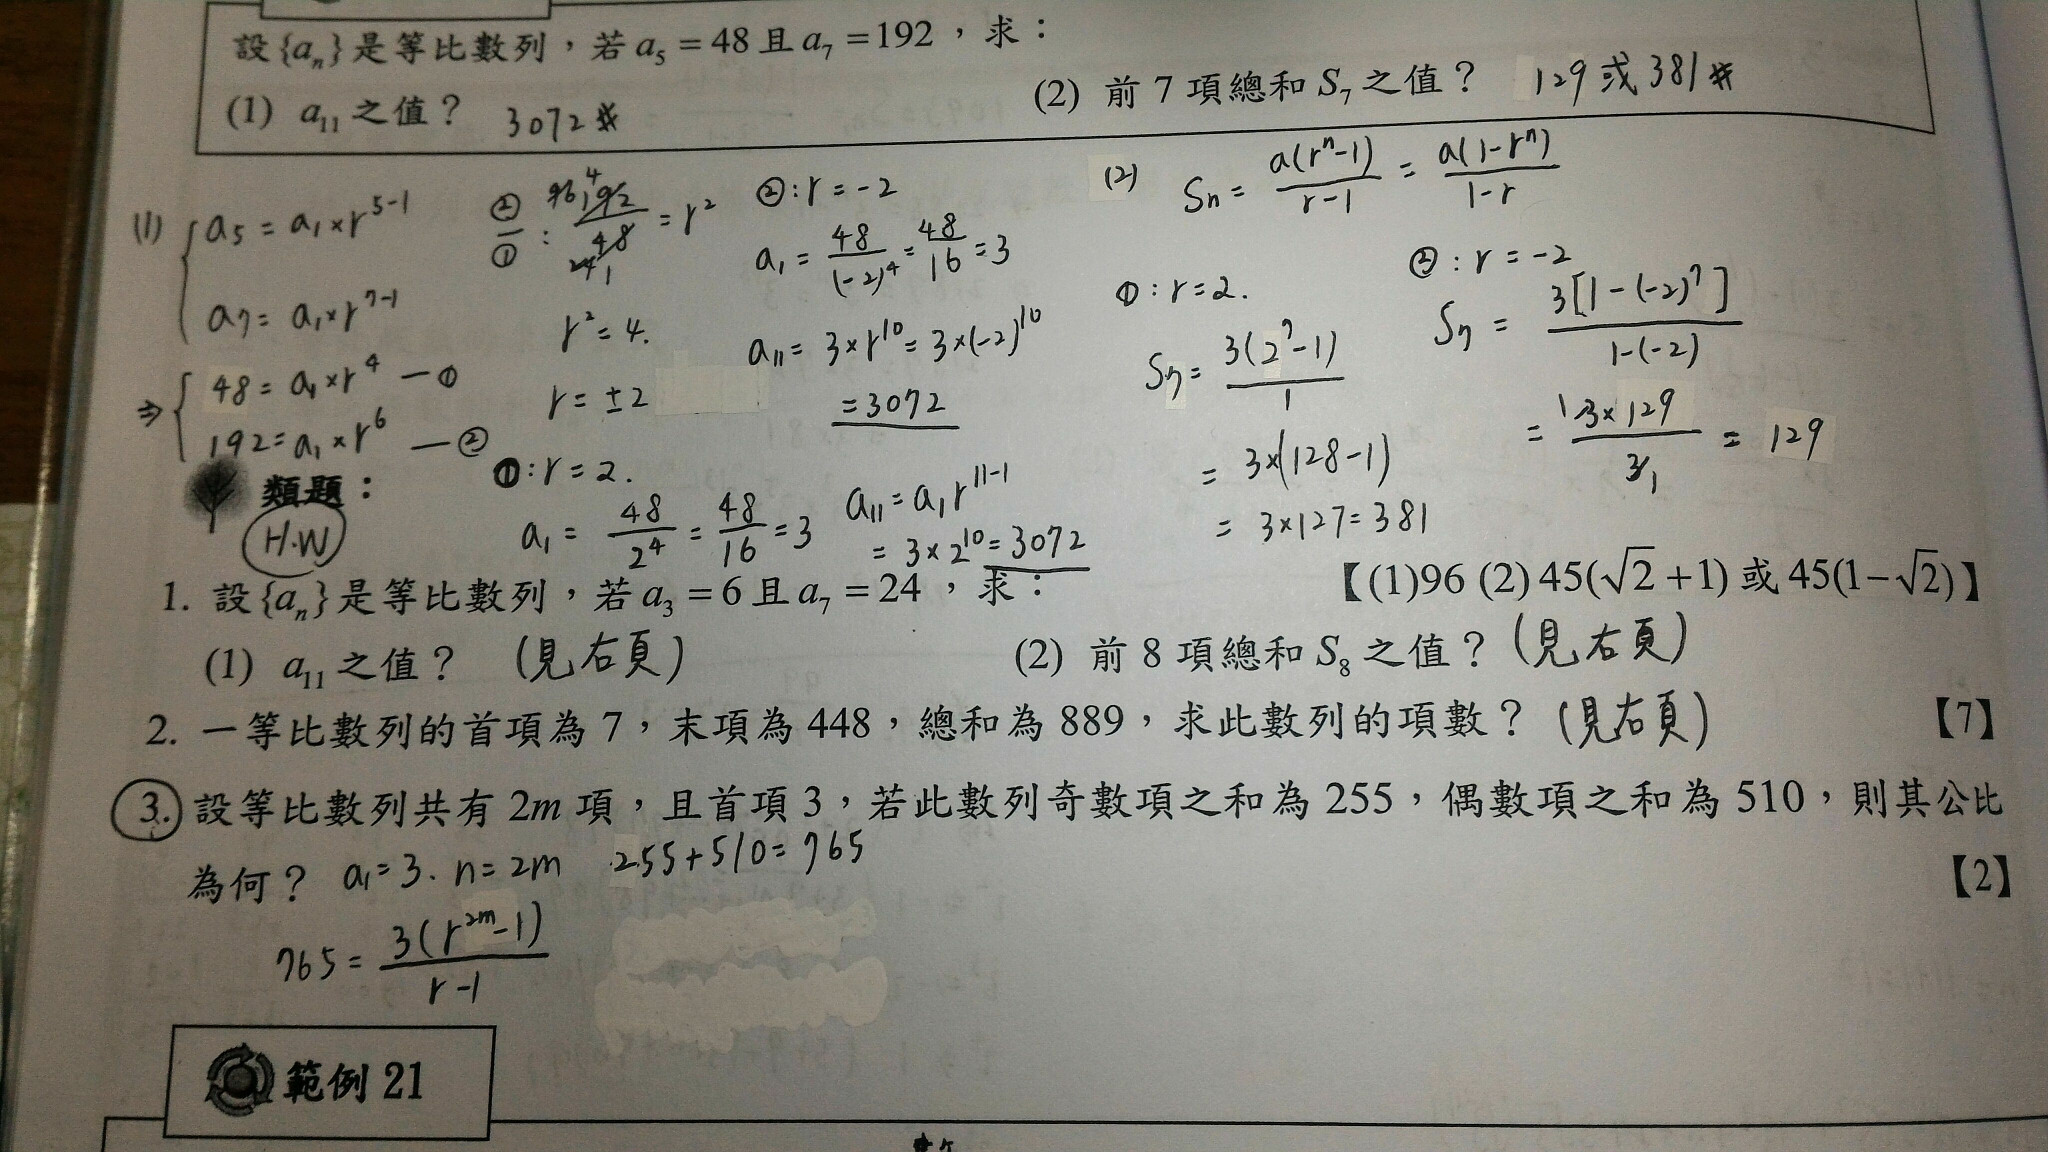 設{aₙ}是等比數列，若a₅=48且a₇=192，求：
(1) a₁₁之值？ 3072#
(2) 前7項總和S₇之值？ 129或381#
(1) { a₅ = a₁×r⁵⁻¹
a₇ = a₁×r⁷⁻¹
⇒ { 48 = a₁×r⁴ —①
192 = a₁×r⁶ —②
②/① : 192/48 = r²
r² = 4.
r = ±2
①: r = 2.
a₁ = 48/2⁴ = 48/16 = 3
a₁₁ = a₁r¹¹⁻¹
= 3×2¹⁰ = 3072
②: r = -2
a₁ = 48/(-2)⁴ = 48/16 = 3
a₁₁ = 3×r¹⁰ = 3×(-2)¹⁰
= 3072
(2) Sn = a(rⁿ-1)/(r-1) = a(1-rⁿ)/(1-r)
①: r = 2.
S₇ = 3(2⁷-1)/1
= 3×(128-1)
= 3×127 = 381
②: r = -2
S₇ = 3[1-(-2)⁷]/(1-(-2))
= 3×129/3 = 129
類題：
H.W
【(1)96 (2) 45(√2+1) 或 45(1-√2)】
1. 設{aₙ}是等比數列，若a₃=6且a₇=24，求：
(1) a₁₁之值？ (見右頁)
(2) 前8項總和S₈之值？ (見右頁)
2. 一等比數列的首項為7，末項為448，總和為889，求此數列的項數？ (見右頁) 【7】
3. 設等比數列共有2m項，且首項3，若此數列奇數項之和為255，偶數項之和為510，則其公比
為何？ a₁=3. n=2m 255+510=765 【2】
765 = 3(r²ᵐ-1)/(r-1)
範例 21